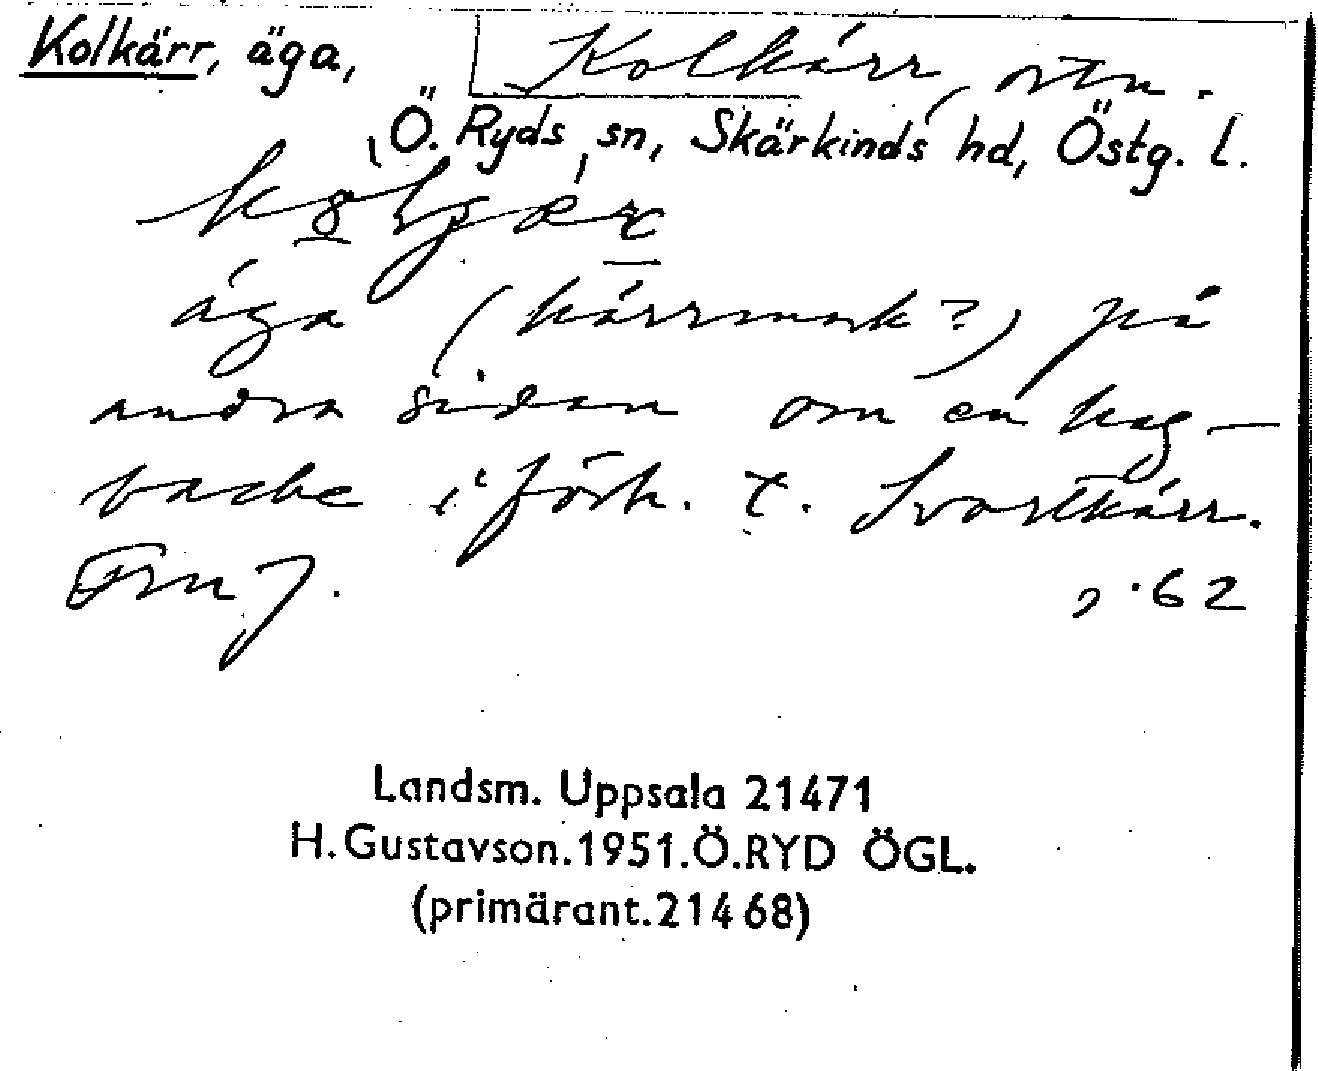 Kolkärr, äga,
Kolkärr, ortn.
Ö. Ryds sn, Skärkinds hd, Östg. l.
äga (kärrmark?) på
andra sidan om en hag-
backe i förh. t. Svartkärr.
s. 62
Landsm. Uppsala 21471
H.Gustavson.1951.Ö.RYD ÖGL.
(primärant.21468)